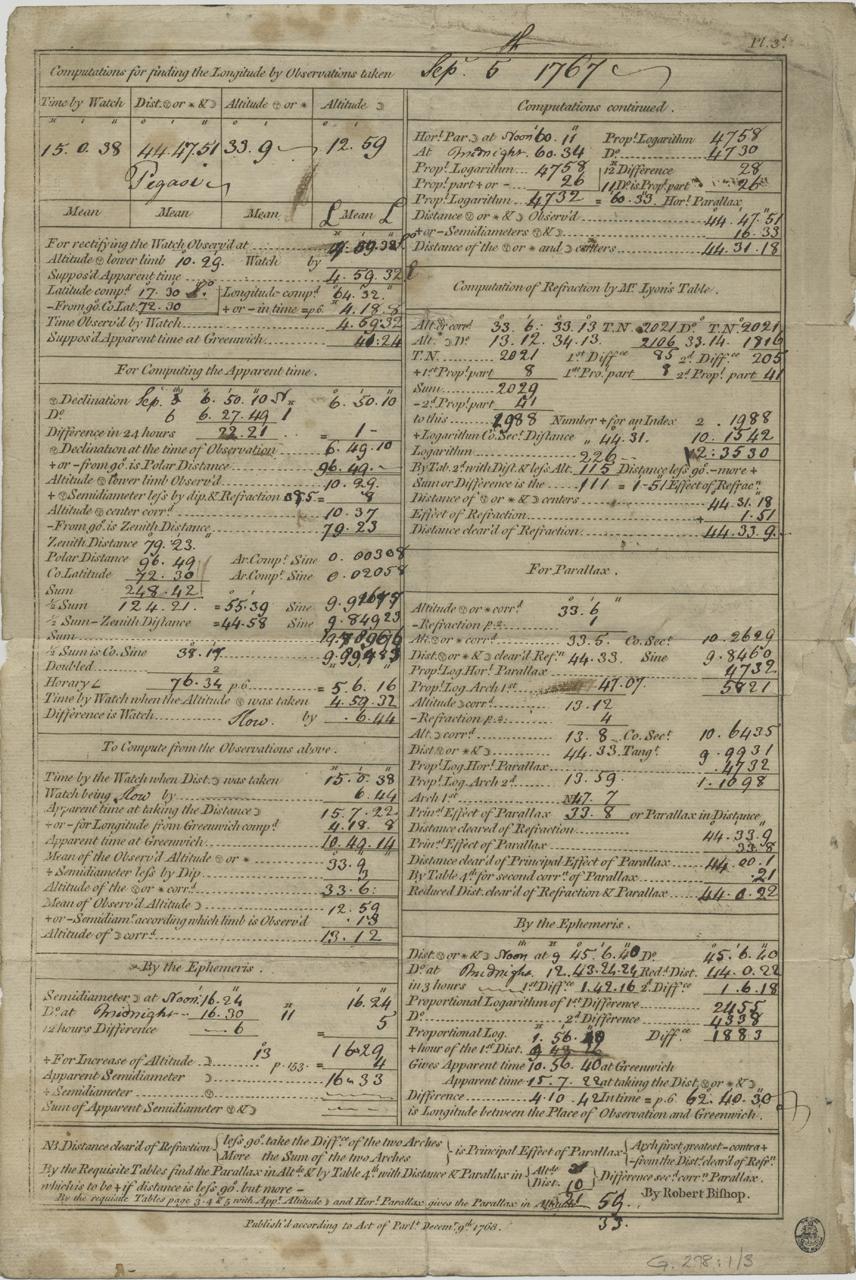 Pl. 3.d
Computations for finding the Longitude by Observations taken Sep.r 5th 1767
Time by Watch Dist. ☉ or * & ☽ Altitude ☉ or * Altitude ☽
15. 0. 38 44.47.51 33. 9 12. 59
Pegasi
Mean Mean Mean Mean
For rectifying the Watch Observ'd at
Altitude ☉ lower limb 10. 29. Watch by
Suppos'd Apparent time 4. 59. 32
Latitude comp.d 17. 30 Longitude comp.d 64. 32.
- From 90. Co. Lat. 72. 30 + or - in time = p.6. 4. 18. 8
Time Observ'd by Watch 4. 59. 32
Suppos'd Apparent time at Greenwich
For Computing the Apparent time.
☉ Declination Sep. 5 6. 50. 10 6. 50. 10
D.o 6 6. 27. 49
Difference in 24 hours 22. 21 = 1 -
☉ Declination at the time of Observation 6. 49. 10
+ or - from 90. is Polar Distance 96. 49. -
Altitude ☉ lower limb Observ'd 10. 29.
+ ☉ Semidiameter less by dip. & Refraction = 8
Altitude ☉ center corr.d 10. 37
- From 90. is Zenith Distance 79. 23
Zenith Distance 79. 23.
Polar Distance 96. 49 Ar. Comp.t Sine 0. 00308
Co. Latitude 72. 30 Ar. Comp.t Sine 0. 02058
Sum 248. 42
½ Sum 124. 21. = 55. 39 Sine
½ Sum - Zenith Distance = 44. 58 Sine 9. 84923
Sum
½ Sum is Co. Sine 38. 17
Doubled 2
Horary ∠ 76. 34 p.6. = 5. 6. 16
Time by Watch when the Altitude ☉ was taken 4. 59. 32
Difference is Watch Slow by . 6. 44
To Compute from the Observations above.
Time by the Watch when Dist. ☽ was taken 15. 0. 38
Watch being Slow by 6. 44
Apparent time at taking the Distance ☽ 15. 7. 22
+ or - for Longitude from Greenwich comp.d 4. 18. 8
Apparent time at Greenwich 10. 49. 14
Mean of the Observ'd Altitude ☉ or * 33. 9
+ Semidiameter less by Dip 3
Altitude of the ☉ or * corr.d 33. 6
Mean of Observ'd Altitude ☽ 12. 59
+ or - Semidiam.r according which limb is Observ'd . 13
Altitude of ☽ corr.d 13. 12
By the Ephemeris.
Semidiameter ☽ at Noon 16. 24 16. 24
D.o at Midnight 16. 30 11 5
12 hours Difference 6 =
16. 29
+ For Increase of Altitude ☽ 13 p. 153. = 4
Apparent Semidiameter ☽ 16. 33
+ Semidiameter
Sum of Apparent Semidiameter ☉ & ☽
Computations continued.
Hor.l Par. ☽ at Noon 60. 11 Prop.l Logarithm 4758
At Midnight. 60. 34 D.o 4730
Prop.l Logarithm 4758 12 Difference 28
Prop.l part + or - 26 11 D.o is Prop.l part 26
Prop.l Logarithm 4732 = 60. 33 Hor.l Parallax
Distance ☉ or * & ☽ Observ'd 44. 47. 51
+ or - Semidiameters ☉ & ☽ 16. 33
Distance of the ☉ or * and ☽ centers 44. 31. 18
Computation of Refraction by Mr. Lyon's Table.
Alt. ☉ corr.d 33. 6. 33. 13 T.N. 2021 D.o T.N. 2021
Alt. ☽ D.o 13. 12. 34. 13. 2106 33. 14. 1816
T.N. 2021 1st Diff.ce 85 2.d Diff.ce 205
+ 1st Prop.l part 8 1st Pro. part 8 2.d Prop.l part 41
Sum 2029
- 2.d Prop.l part 41
to this 1988 Number + for an Index 2. 1988
+ Logarithm Co. Sec.t Distance 44. 31. 10. 1542
Logarithm 226 12. 3530
By Tab. 2.d with Dist. & less Alt. 115 Distance less 90. - more +
Sum or Difference is the 111 = 1-51 Effect of Refrac.n
Distance of ☉ or * & ☽ centers 44. 31. 18
Effect of Refraction + 1. 51
Distance clear'd of Refraction 44. 33. 9
For Parallax.
Altitude ☉ or * corr.d 33. 6
- Refraction p. 2. 1
Alt. ☉ or * corr.d 33. 5. Co. Sec.t 10. 2629
Dist. ☉ or * & ☽ clear'd Ref.n 44. 33. Sine 9. 8460
Prop.l Log. Hor.l Parallax 4732
Prop.l Log. Arch 1st 47. 07. 5821
Altitude ☽ corr.d 13. 12
- Refraction p. 2. 4
Alt. ☽ corr.d 13. 8 Co. Sec.t 10. 6435
Dist. ☉ or * & ☽ 44. 33. Tang.t 9. 9931
Prop.l Log. Hor.l Parallax 4732
Prop.l Log. Arch 2.d 13. 59. 1. 1098
Arch 1st 47. 7
Prin.l Effect of Parallax 33. 8 or Parallax in Distance
Distance cleared of Refraction 44. 33. 9
Prin.l Effect of Parallax 33. 8
Distance clear'd of Principal Effect of Parallax 44. 00. 1
By Table 4.th for second corr.n of Parallax . 21
Reduced Dist. clear'd of Refraction & Parallax 44. 0. 22
By the Ephemeris.
Dist. ☉ or * & ☽ Noon at 9 45. 6. 40 D.o 45. 6. 40
D.o at Midnight. 12. 43. 24. 24 Red.d Dist. 44. 0. 22
in 3 hours 1st Diff.ce 1. 42. 16 2.d Diff.ce 1. 6. 18
Proportional Logarithm of 1st Difference 2455
D.o 2.d Difference 4338
Proportional Log. 1. 56. Diff.ce 1883
+ hour of the 1st Dist.
Gives Apparent time 10. 56. 40 at Greenwich
Apparent time 15. 7. 22 at taking the Dist. ☉ or * & ☽
Difference 4. 10. 42 In time = p. 6 62. 40. 30
is Longitude between the Place of Observation and Greenwich.
NB. Distance clear'd of Refraction { less 90. take the Diff.ce of the two Arches } is Principal Effect of Parallax { Arch first greatest - contra +
More the Sum of the two Arches - from the Dist. clear'd of Ref.n
By the Requisite Tables find the Parallax in Alt.de & by Table 4.th with Distance & Parallax in { Alt.de Dist. 10 } Difference sec.d corr.n Parallax.
which is to be + if distance is less 90. but more -
By Robert Bishop.
By the requisite Tables page 3. 4 & 5 with App.t Altitude ☽ and Hor.l Parallax gives the Parallax in Altitude 59.
33.
Publish'd according to Act of Parl.t Decem.r 9.th 1768.
G. 298:1/3